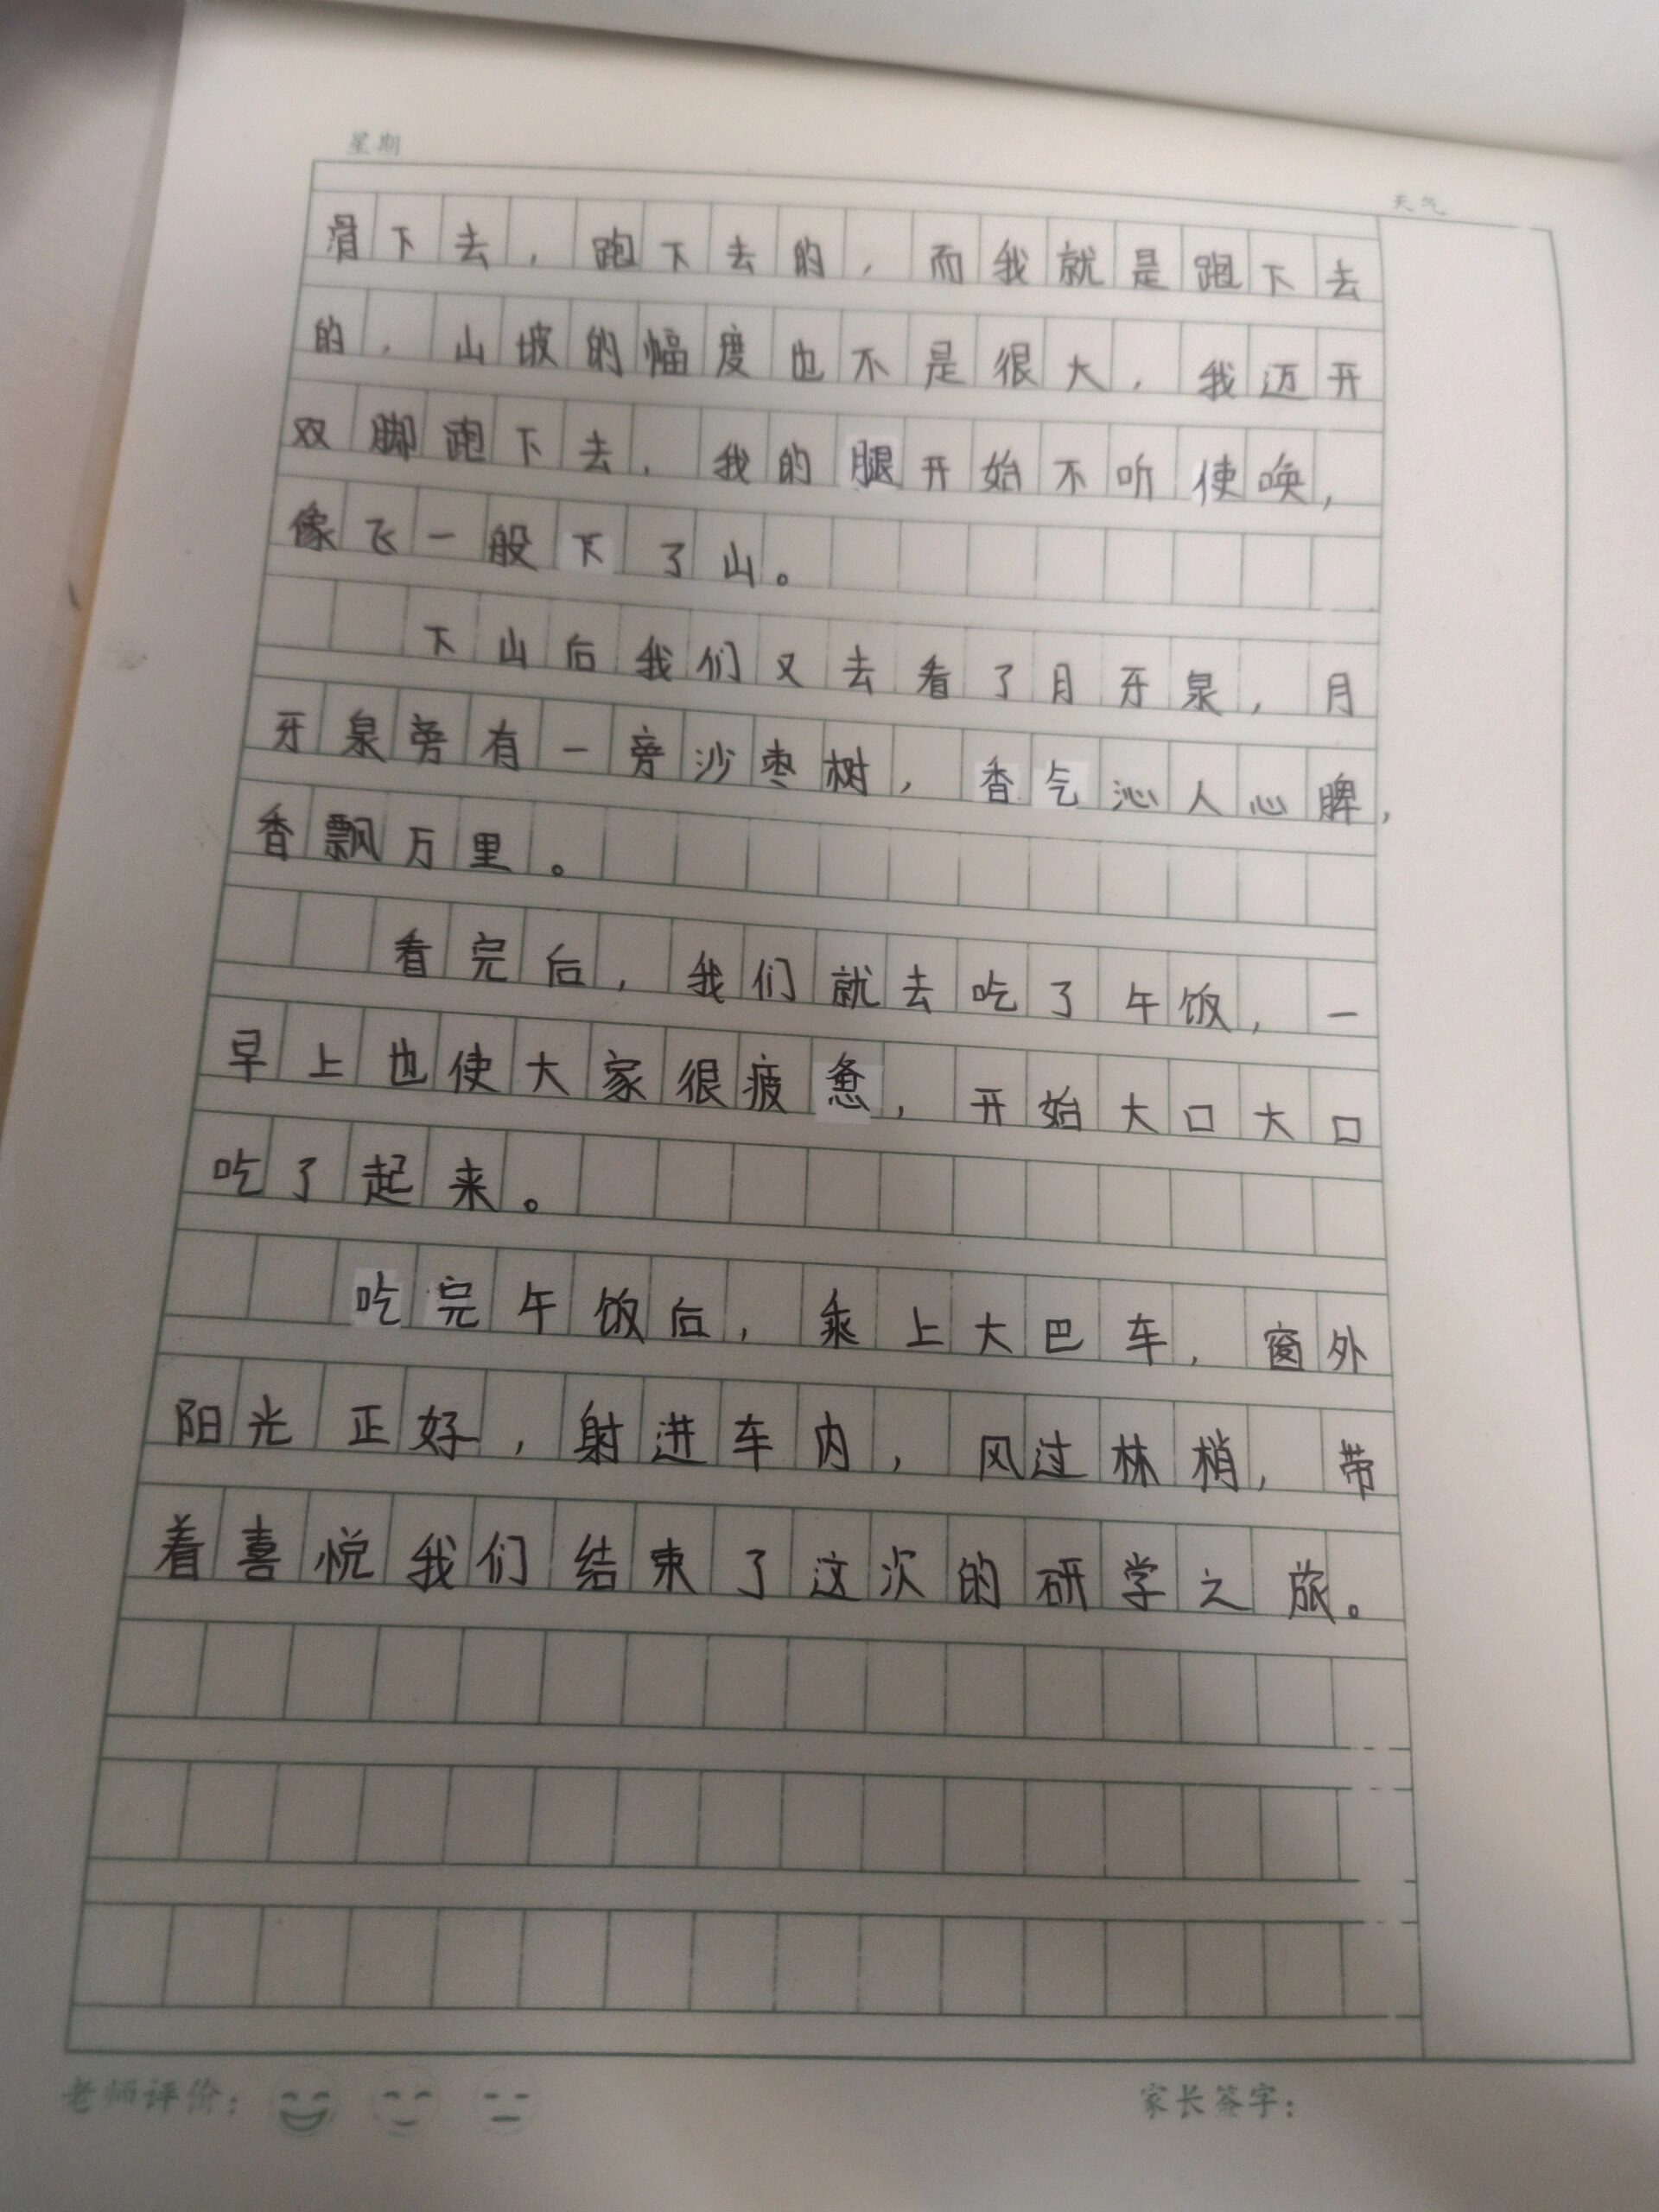 星期
天气
滑下去，跑下去的，而我就是跑下去
的，山坡的幅度也不是很大，我迈开
双脚跑下去，我的腿开始不听使唤，
像飞一般下了山。
下山后我们又去看了月牙泉，月
牙泉旁有一旁沙枣树，香气沁人心脾，
香飘万里。
看完后，我们就去吃了午饭，一
早上也使大家很疲惫，开始大口大口
吃了起来。
吃完午饭后，乘上大巴车，窗外
阳光正好，射进车内，风过林梢，带
着喜悦我们结束了这次的研学之旅。
老师评价：
家长签字：